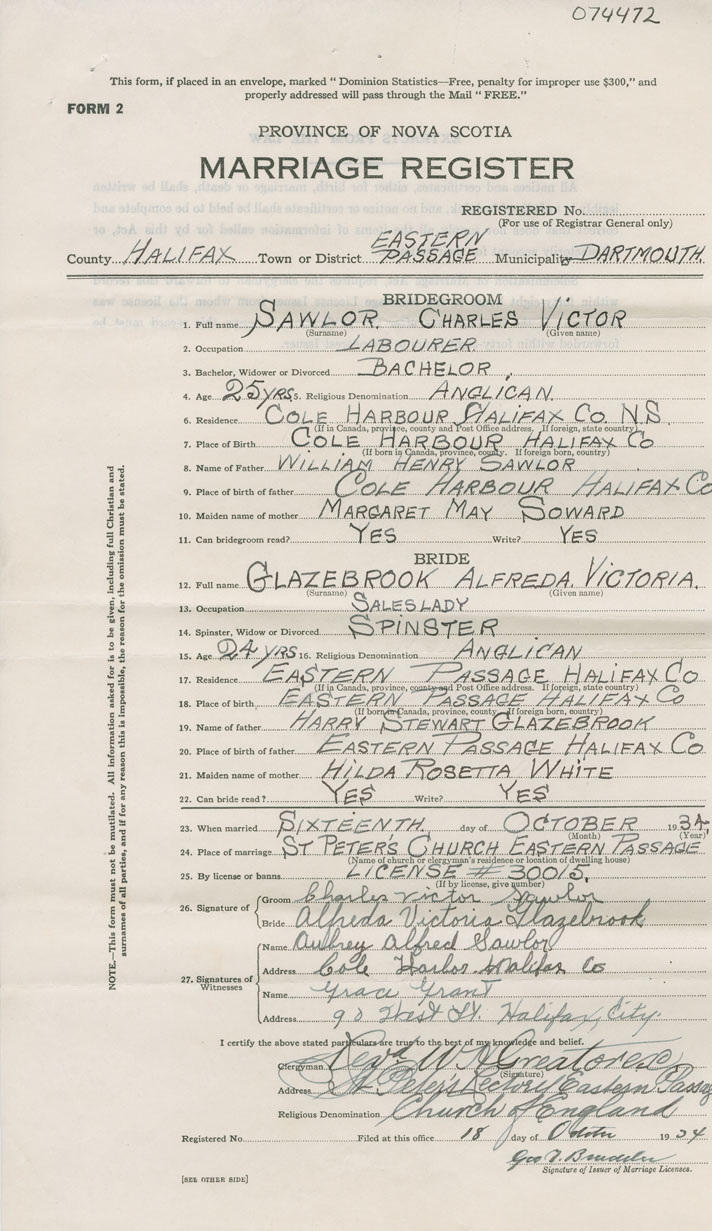 074472
This form, if placed in an envelope, marked “ Dominion Statistics—Free, penalty for improper use $300,” and
properly addressed will pass through the Mail “ FREE.”
FORM 2
PROVINCE OF NOVA SCOTIA
MARRIAGE REGISTER
REGISTERED No.
(For use of Registrar General only)
County HALIFAX Town or District EASTERN PASSAGE Municipality DARTMOUTH
BRIDEGROOM
1. Full name SAWLOR CHARLES VICTOR
(Surname) (Given name)
2. Occupation LABOURER
3. Bachelor, Widower or Divorced BACHELOR
4. Age 25 YRS 5. Religious Denomination ANGLICAN
6. Residence COLE HARBOUR HALIFAX CO N.S.
(If in Canada, province, county and Post Office address. If foreign, state country)
7. Place of Birth COLE HARBOUR HALIFAX CO
(If born in Canada, province, county. If foreign born, country)
8. Name of Father WILLIAM HENRY SAWLOR
9. Place of birth of father COLE HARBOUR HALIFAX CO
10. Maiden name of mother MARGARET MAY SOWARD
11. Can bridegroom read? YES Write? YES
BRIDE
12. Full name GLAZEBROOK ALFREDA VICTORIA
(Surname) (Given name)
13. Occupation SALESLADY
14. Spinster, Widow or Divorced SPINSTER
15. Age 24 YRS 16. Religious Denomination ANGLICAN
17. Residence EASTERN PASSAGE HALIFAX CO
(If in Canada, province, county and Post Office address. If foreign, state country)
18. Place of birth EASTERN PASSAGE HALIFAX CO
(If born in Canada, province, county. If foreign born, country)
19. Name of father HARRY STEWART GLAZEBROOK
20. Place of birth of father EASTERN PASSAGE HALIFAX CO
21. Maiden name of mother HILDA ROSETTA WHITE
22. Can bride read? YES Write? YES
23. When married SIXTEENTH day of OCTOBER 1934
(Month) (Year)
24. Place of marriage ST PETER'S CHURCH EASTERN PASSAGE
(Name of church or clergyman's residence or location of dwelling house)
25. By license or banns LICENSE # 30015
(If by license, give number)
26. Signature of
Groom Charles Victor Sawlor
Bride Alfreda Victoria Glazebrook
27. Signatures of Witnesses
Name Aubrey Alfred Sawlor
Address Cole Harbor Halifax Co
Name Grace Grant
Address 90 West St. Halifax City.
I certify the above stated particulars are true to the best of my knowledge and belief.
Clergyman Revd W N Greatorex
(Signature)
Address St Peter's Rectory Eastern Passag
Religious Denomination Church of England
Registered No. Filed at this office 18 day of October 1934
Geo
Signature of Issuer of Marriage Licenses.
[SEE OTHER SIDE]
NOTE.—This form must not be mutilated. All information asked for is to be given, including full Christian and
surnames of all parties, and if for any reason this is impossible, the reason for the omission must be stated.